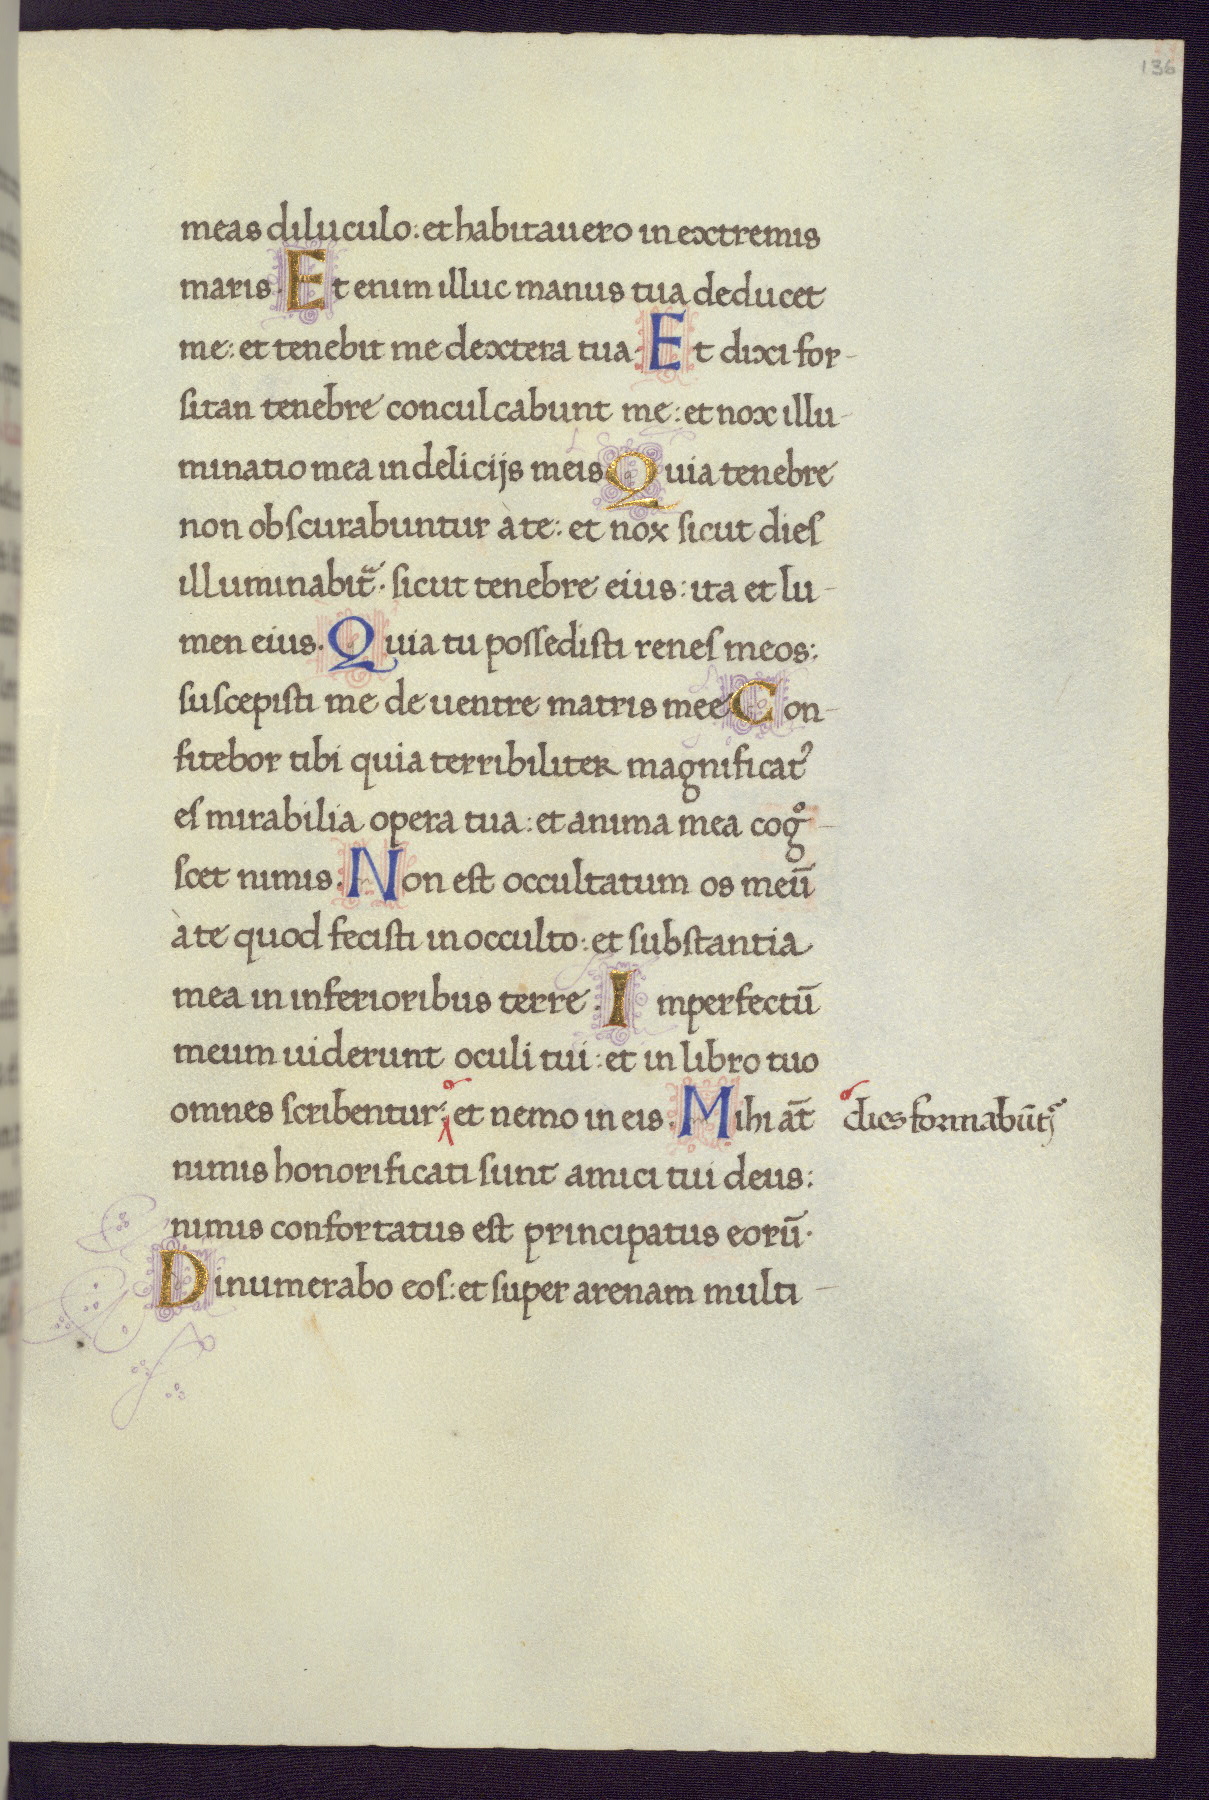 136
meas diluculo: et habitauero in extremis
maris. Et enim illuc manus tua deducet
me: et tenebit me dextera tua. Et dixi for-
sitan tenebre conculcabunt me: et nox illu-
minatio mea in delicijs meis. Quia tenebre
non obscurabuntur à te: et nox sicut dies
illuminabit̃. sicut tenebre eius: ita et lu-
men eius. Quia tu possedisti renes meos:
suscepisti me de uentre matris mee Con-
fitebor tibi quia terribiliter magnificatꝰ
es mirabilia opera tua: et anima mea cogͦ-
scet nimis. Non est occultatum os meū
à te quod fecisti in occulto: et substantia
mea in inferioribus terre. Imperfectū
meum uiderunt oculi tui: et in libro tuo
omnes scribentur: et nemo in eis. Mihi at̄
dies formabūt᷑
nimis honorificati sunt amici tui deus:
nimis confortatus est principatus eorū.
Dinumerabo eos: et super arenam multi-